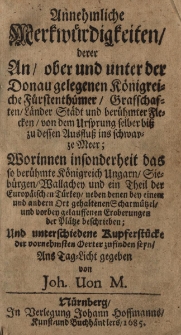 Annehmliche
Merkwürdigkeiten/
derer
An/ ober und unter der
Donau gelegenen Königrei-
che Fürstenthümer/ Graffschaf-
ten/ Länder Städt und berühmter Fle-
cken/ von dem Ursprung selber biß
zu dessen Ausfluß ins schwar-
ze Meer;
Worinnen insonderheit das
so berühmte Königreich Ungarn/ Sie-
bürgen/ Wallachey und ein Theil der
Europäisch en Türkey/ neben denen bey einem
und andern Ort gehaltenen Scharmützel/
und vorbey geloffenen Eroberungen
der Plätze beschrieben;
Und unterschiedene Kupferstücke
der vornehmsten Oerter zufinden seyn/
Ans Tag-Licht gegeben
von
Joh. Uon M.
Nürnberg/
In Verlegung Johann Hoffmanns/
Kunst und Buchhändlers/ 1685.